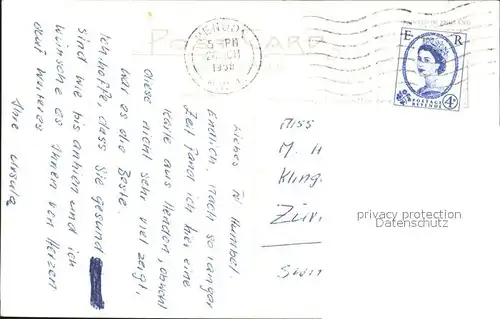 POST CARD
HENDON
5-PM
1958
E R
POSTAGE
REVENUE
4D
Liebes Frl Humbel.
Endlich, nach so langer
Zeit fand ich hier eine
Karte aus Hendon, obwohl
diese nicht sehr viel zeigt,
war es die Beste.
Ich hoffe, dass Sie gesund
sind wie bis anhin und ich
wünsche es Ihnen von Herzen
auf weiteres
Ihre Ursula
Miss
M. H
Kling
Zür
Swit
privacy protection
Datenschutz